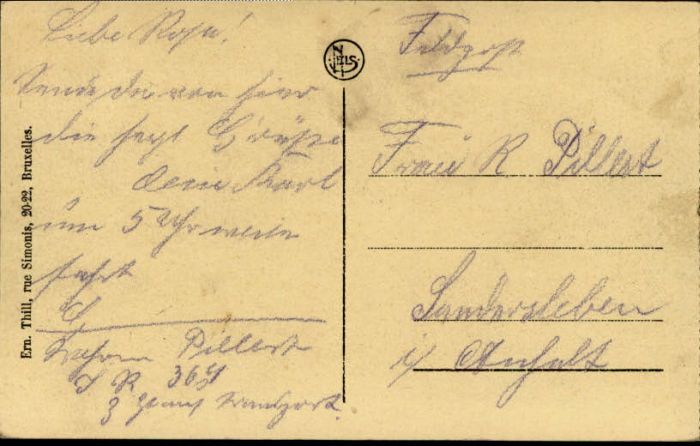 Liebe Rosa!
Sende dir von hier
die Grüße
dein Karl
um 5 Uhr weiter
fahrt
Wehrm Pillert
I R 364
3 Transport.
Ern. Thill, rue Simonis, 20-22, Bruxelles.
NELS
Feldpost
Frau R Pillert
Sandersleben
i/ Anhalt